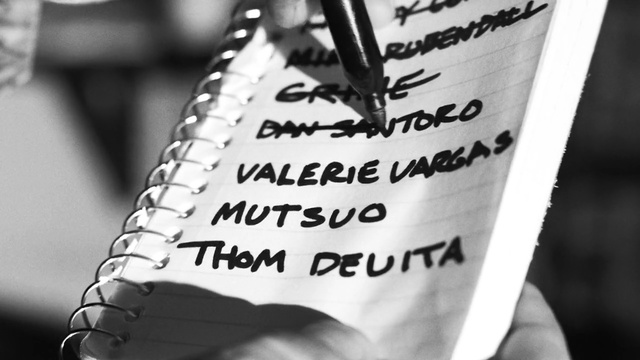 RUBENDALL
GRIME
DAN SANTORO
VALERIE VARGAS
MUTSUO
THOM DEVITA